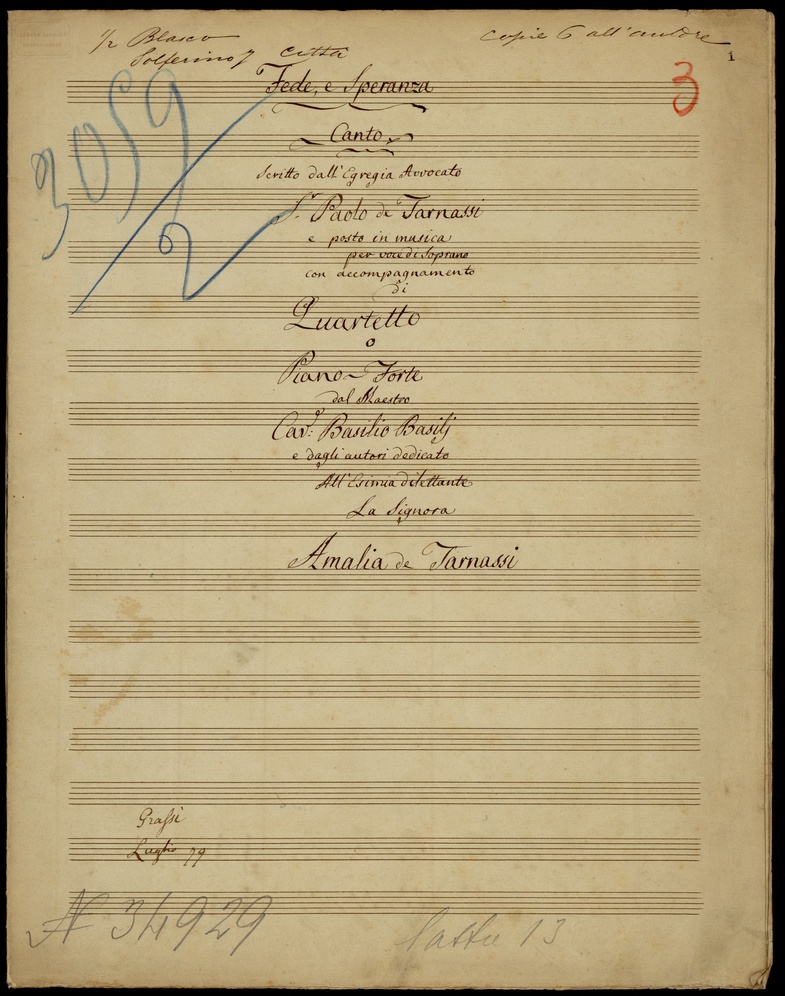 1/2 Blasco
Solferino 7 città
copie 6 all'autore
1
3
3059
2
Fede, e Speranza
Canto
Scritto dall'Egregia Avvocato
Sr. Paolo de Tarnassi
e posto in musica
per voce di Soprano
con accompagnamento
di
Quartetto
o
Piano-Forte
dal Maestro
Cavr: Basilio Basilj
e dagli autori dedicato
All'Esimia dilettante
La Signora
Amalia de Tarnassi
Grassi
Luglio 79
N 34929
13